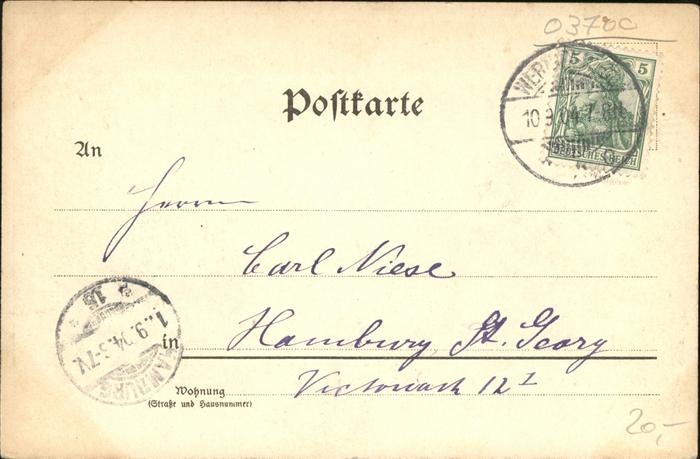 03700
5 5
WER
10.9.04. 7-8
DEUTSCHES REICH
Postkarte
An
Herrn
Carl Niese
Hamburg St. Georg
in
Wohnung
(Straße und Hausnummer)
12 I
HAMBURG
9.04. 5-7 V.
20,-